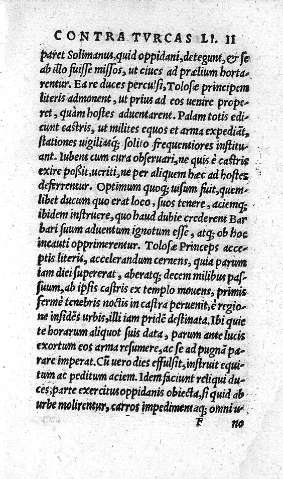 CONTRA TVRCAS LI. II
paret Solimanus, quid oppidani, detegunt, & se
ab illo fuisse missos, ut ciues ad prælium horta-
rentur. Ea re duces perculsi, Tolosæ principem
literis admonent, ut prius ad eos uenire prope-
ret, quàm hostes aduentarent. Palam totis edi-
cunt castris, ut milites equos et arma expediāt,
stationes uigiliasq; solito frequentiores institu-
ant. Iubent cum cura obseruari, ne quis è castris
exire possit, ueriti, ne per aliquem hæc ad hostes
deferrentur. Optimum quoq; uisum fuit, quem-
libet ducum quo erat loco, suos tenere, aciemq;
ibidem instruere, quo haud dubie crederent Bar
bari suum aduentum ignotum esse, atq; ob hoc
incauti opprimerentur. Tolosæ Princeps acce-
ptis literis, accelerandum cernens, quia parum
iam diei supererat, aberatq; decem milibus pas-
suum, ab ipsis castris ex templo mouens, primis
fermè tenebris noctis in castra peruenit, è regio-
ne insidēs urbis, illi iam pridē destinata. Ibi quie
te horarum aliquot suis data, parum ante lucis
exortum eos arma resumere, ac se ad pugnā pa-
rare imperat. Cū uero dies effulsit, instruit equi-
tum ac peditum aciem. Idem faciunt reliqui du-
ces; parte exercitus oppidanis obiecta, si quid ab
urbe molirentur, carros impedimentaq; omni u-
F no